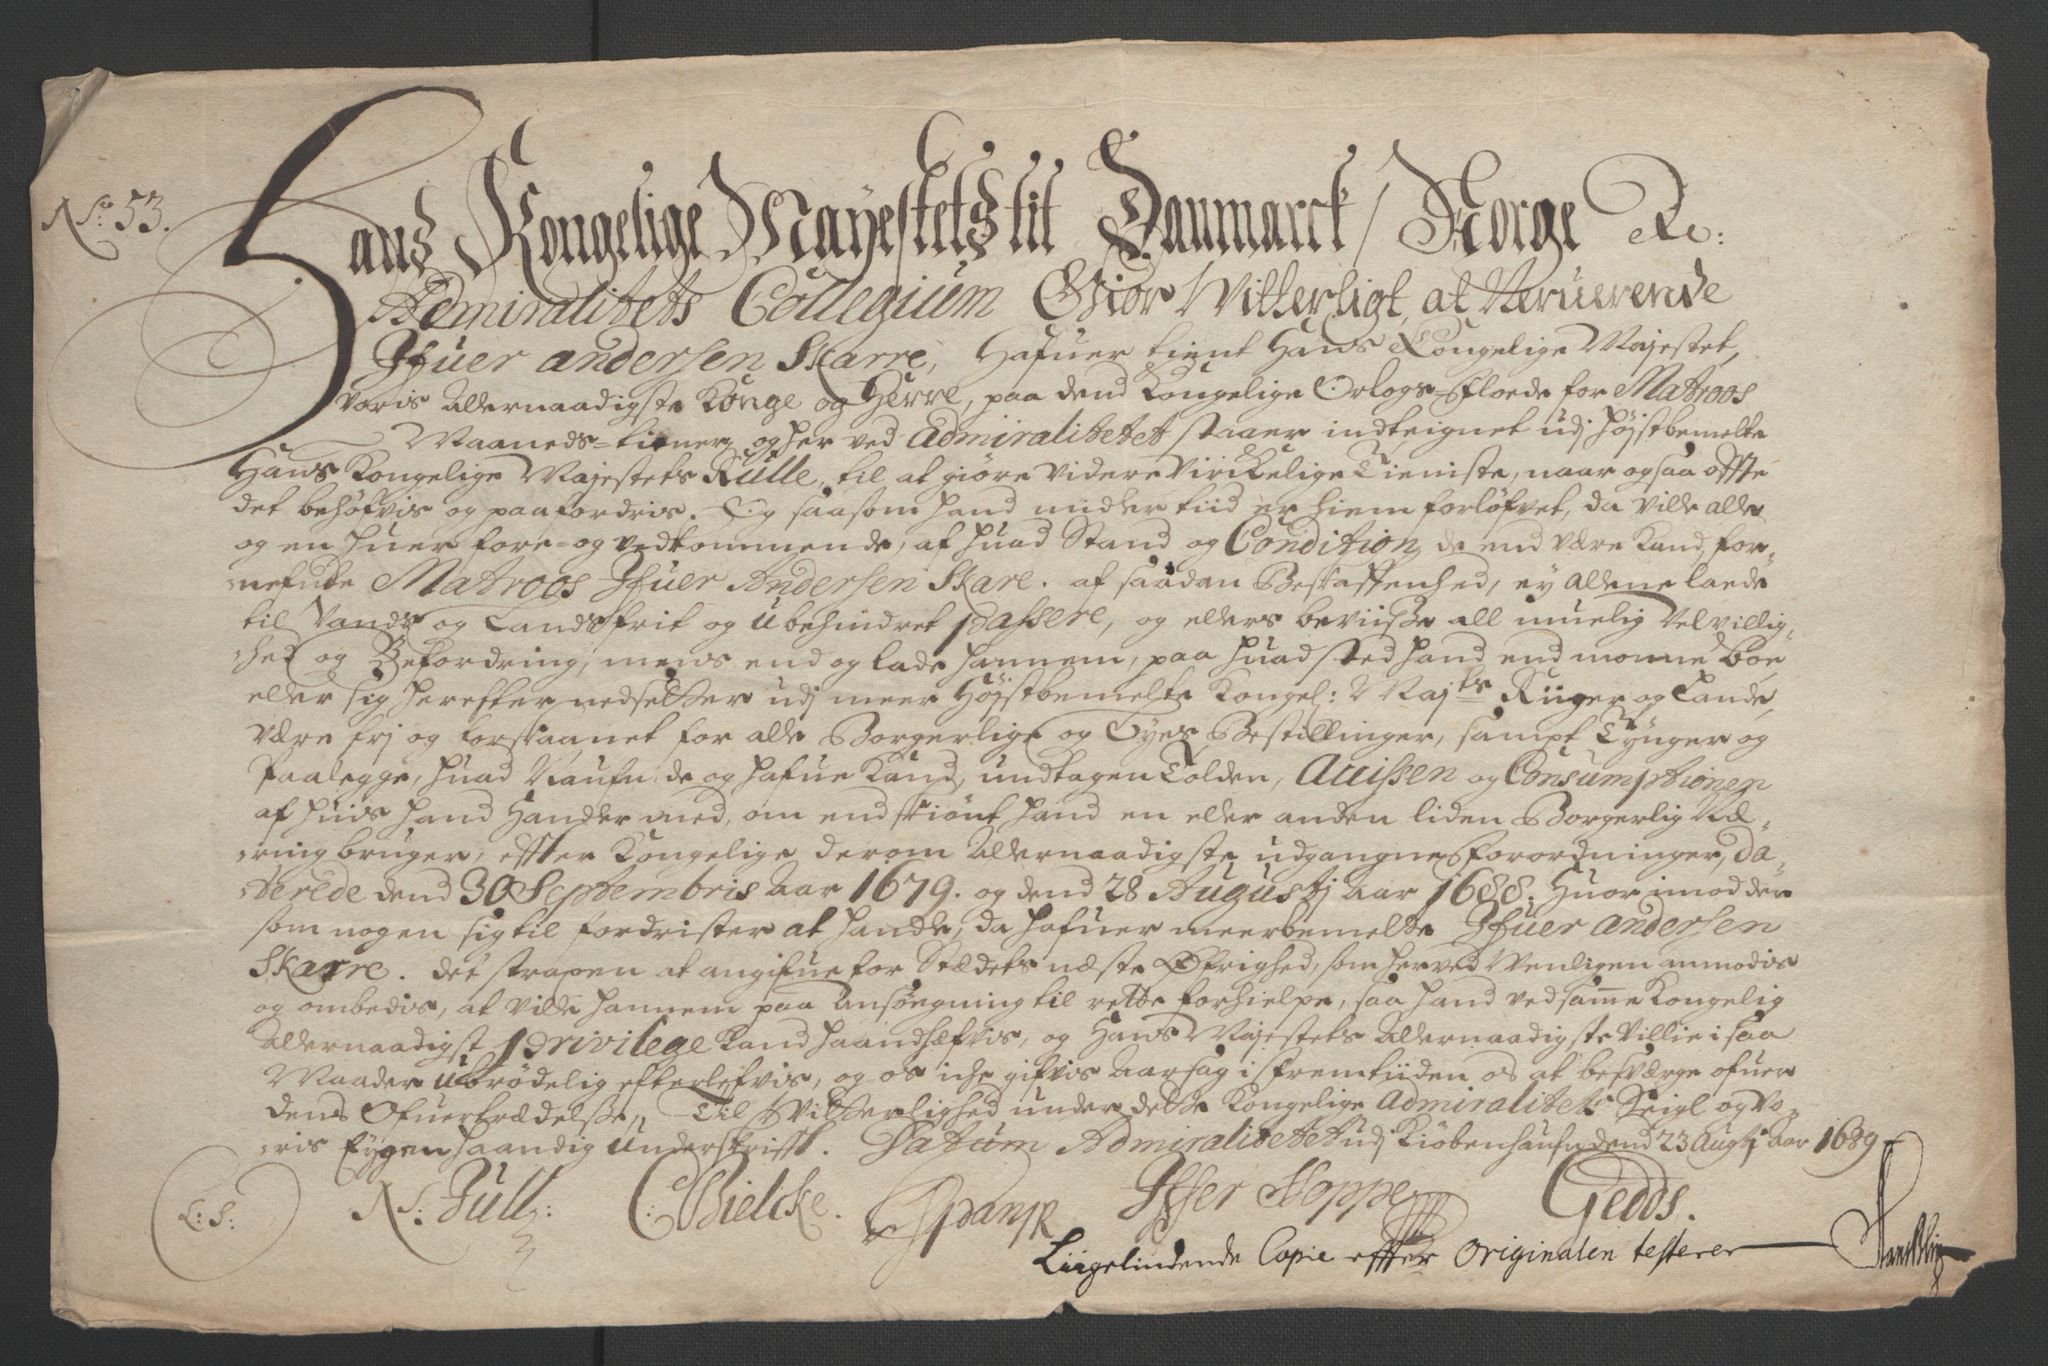 No: 53.
Hans Kongelige Mayestets til Danmarck / Norge Rc:
Admiralitets Collegium Giør Witterligt, at Nerverende
Ifuer andersen Skarre, Hafuer tient Hans Kongelige Majestet,
Voris Allernaadigste Konge og Herre, paa dend Kongelige Orlogs-Floede for Matroos
Maaneds-tiener, og her ved Admiralitetet staaer indteignet udj højstbemelte
Hans Kongelige Majestets Rulle, til at giöre videre virckelige Tieniste, naar og saa offte
det behöfvis og paafordris. Og saasom hand midlertiid er hiemforlöfvet, da ville alle
og en huer fore- og vedkommende, af huad Stand og Condition de end være kand, for-
-nefnte Matroos Ifuer Andersen Skare. af saadan Beskaffenhed, ey allene lade
til Vands og Lands frit og ubehindret passere, og ellers beviisse all muelig velvillig-
-hed og Befordring, mens end og lade hannem, paa huad sted hand end monne boe
eller sig herefter nedsetter udj meer Höjstbemelte Kongel: Majts Riiger og Lande,
være frj og forskaanet for alle Borgerlige og Byes Bestillinger, sampt Tynger og
Paalegge, huad Naufn de og hafue kand, undtagen Tolden, Accissen og Consumptionen
af huis hand Handler med, om endskiönt hand en eller anden liden Borgerlig Næ-
-ring bruger, effter Kongelige derom allernaadigste udgangne Forordninger, da-
-terede dend 30 Septembris Aar 1679. og dend 28 Augustj Aar 1688. Huor imod der
som nogen sig til fordrister at handle, da hafuer meerbemelte Ifuer andersen
Skarre. det strapen at angifue for Stædets næste Øfrighed, som herved Venligen anmodis
og ombedis, at ville hannem paa Ansøegning til rette forhielpe, saa hand ved samme Kongelig
Allernaadigst privilege kand haandhæfvis, og Hans Majestets Allernaadigste Villie i saa
Maader ubrödelig efterlefvis, og os iche gifvis Aarsag i Fremtiiden os at besværge ofuer
dens Ofuertrædelse, Til Vitterlighed under dette Kongelige Admiralitets Seigl og Vo-
-ris Eygenhaandig Underskrifft. Datum Admiralitetet udj Kiöbenhaufn dend 23 Augtj Aar 1689
L: S: Ns: Jull: C: Bielcke. Spanje Iffer Hoppe Gedds.
Liigelindende Copie effter Originalen testerer